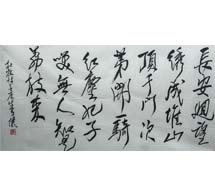 長安回望
繡成堆山
頂千門次
第開一騎
紅塵妃子
笑無人知是
荔枝來